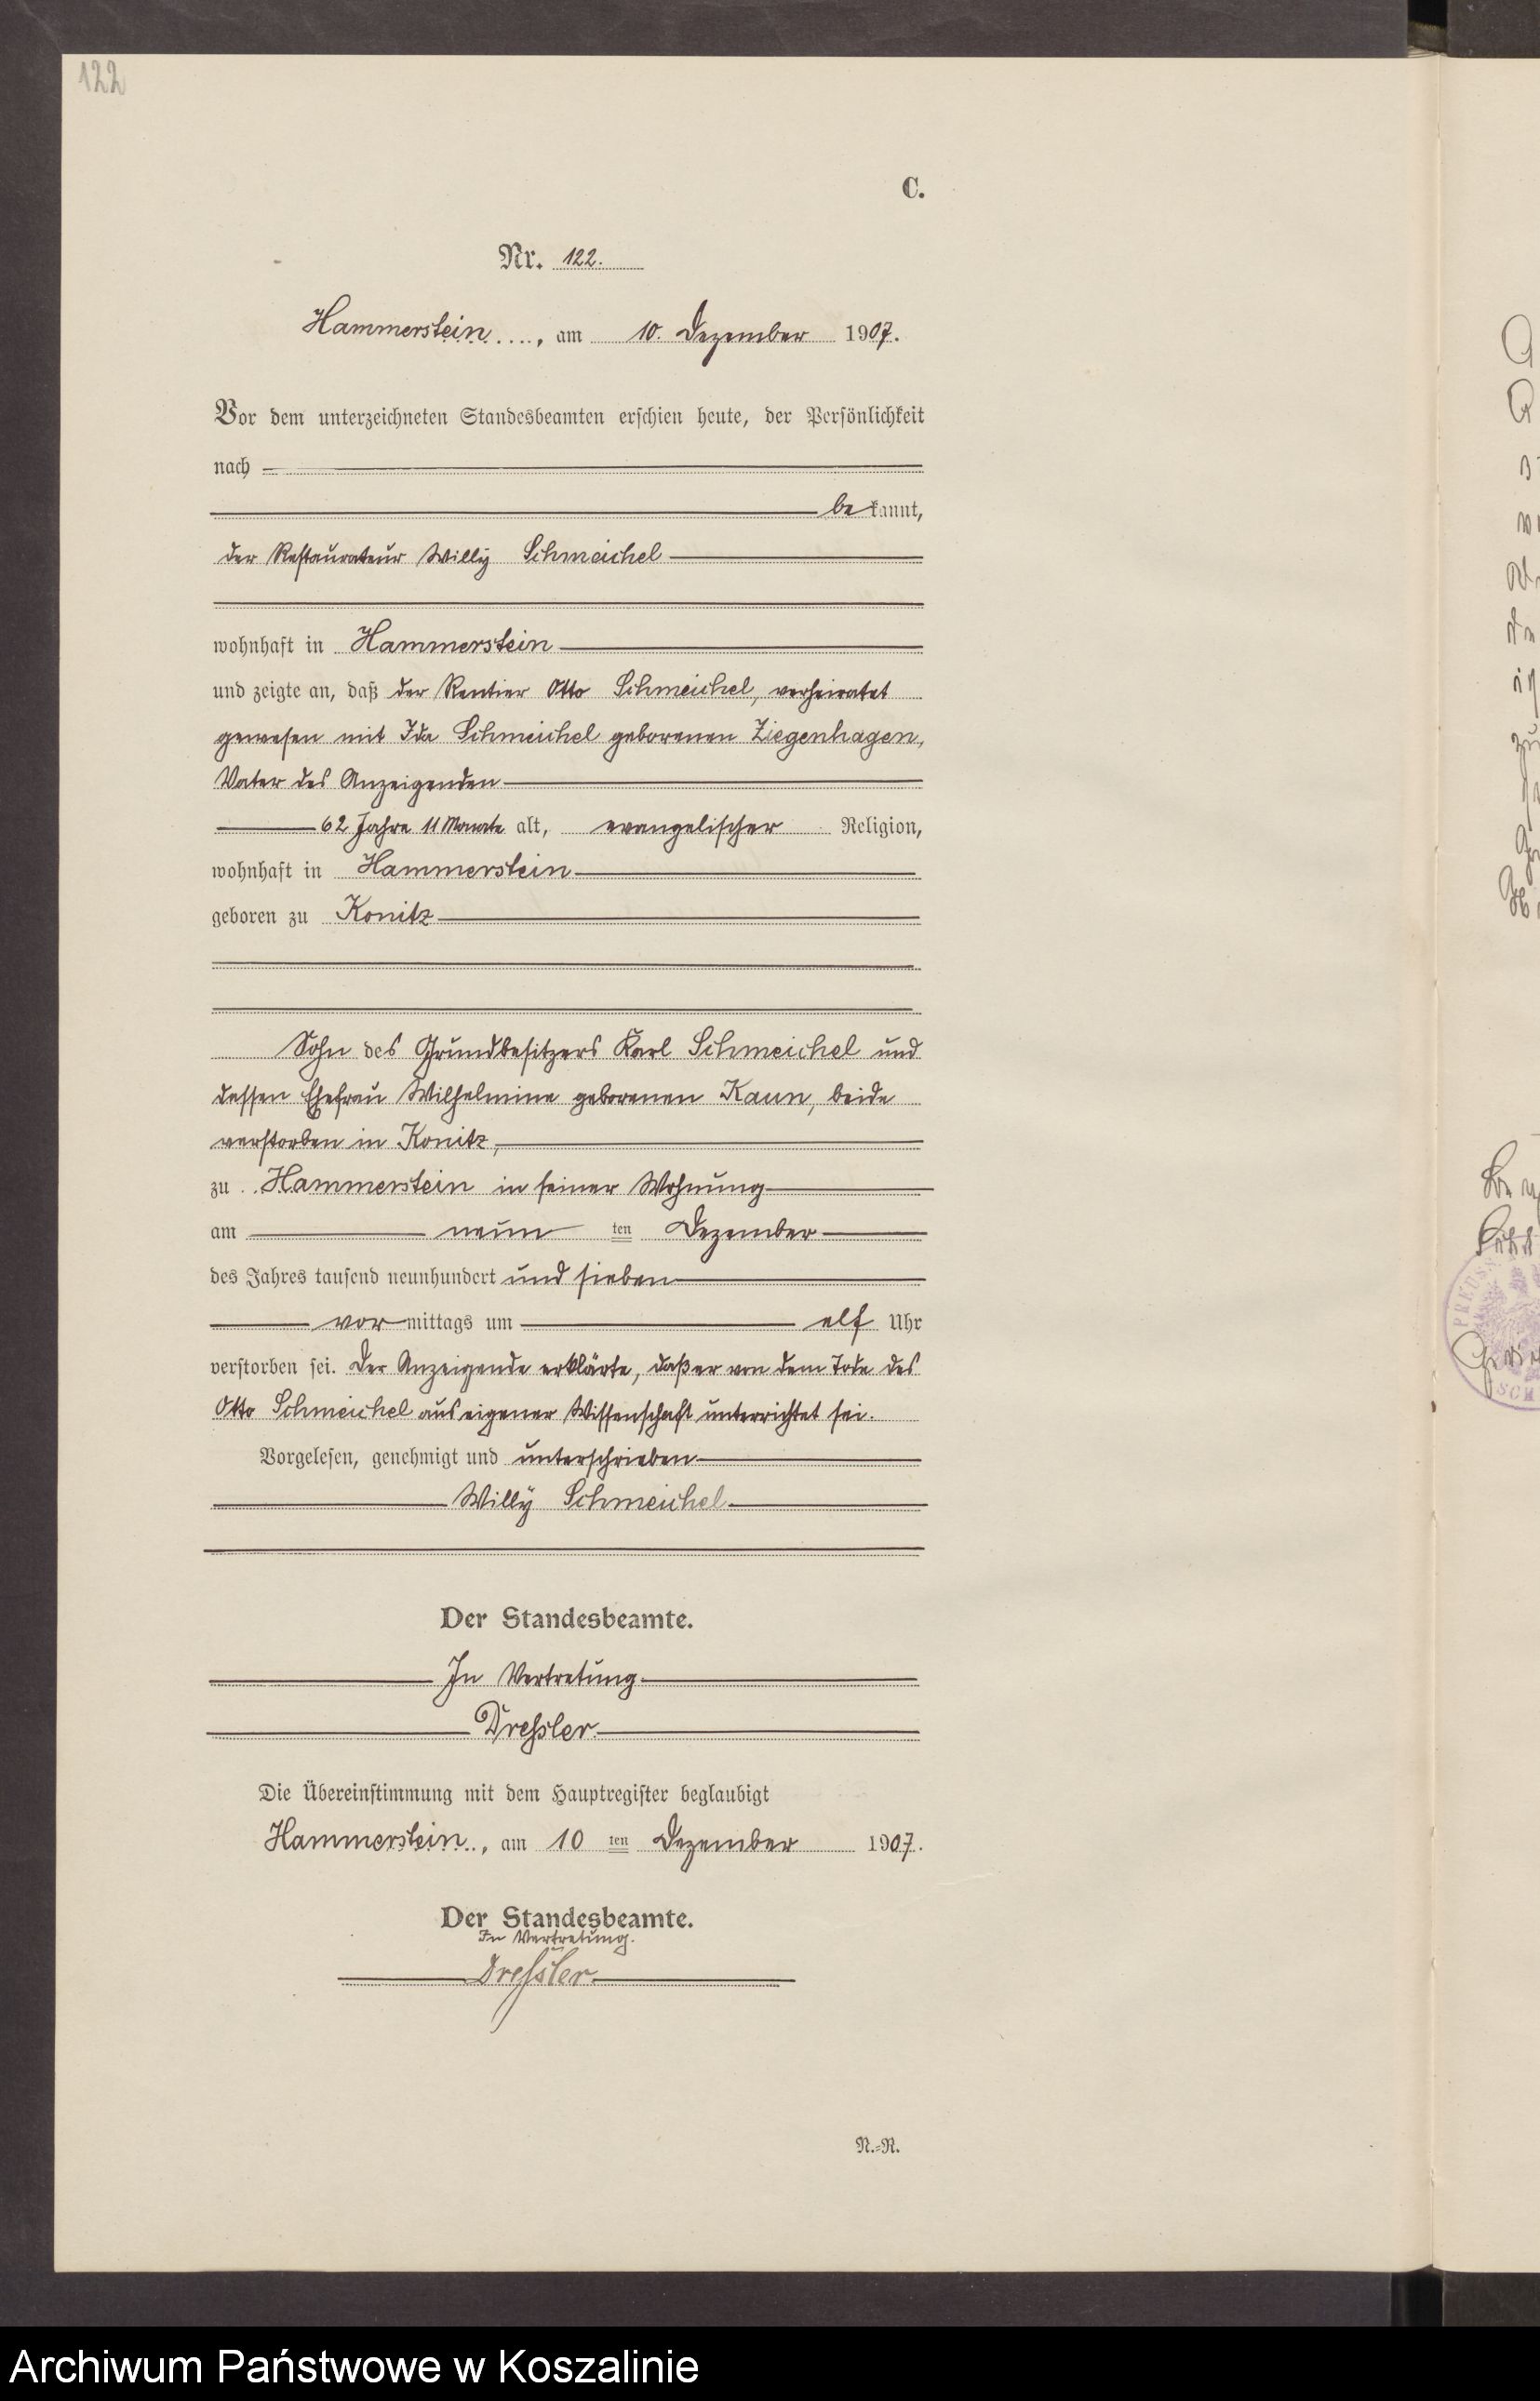 122
C.
Nr. 122.
Hammerstein ...., am 10. Dezember 1907.
Vor dem unterzeichneten Standesbeamten erschien heute, der Persönlichkeit
nach
bekannt,
der Restaurateur Willy Schmeichel
wohnhaft in Hammerstein
und zeigte an, daß der Rentier Otto Schmeichel, verheiratet
gewesen mit Ida Schmeichel geborenen Ziegenhagen,
Vater des Anzeigenden
62 Jahre 11 Monate alt, evangelischer Religion,
wohnhaft in Hammerstein
geboren zu Konitz
Sohn des Grundbesitzers Karl Schmeichel und
dessen Ehefrau Wilhelmine geborenen Kaun, beide
verstorben in Konitz,
zu Hammerstein in seiner Wohnung
am neun ten Dezember
des Jahres tausend neunhundert und sieben
vor mittags um elf Uhr
verstorben sei. Der Anzeigende erklärte, daß er von dem Tode des
Otto Schmeichel aus eigener Wissenschaft unterrichtet sei.
Vorgelesen, genehmigt und unterschrieben
Willy Schmeichel
Der Standesbeamte.
In Vertretung
Dressler.
Die Übereinstimmung mit dem Hauptregister beglaubigt
Hammerstein.., am 10 ten Dezember 1907.
Der Standesbeamte.
In Vertretung.
Dressler.
N.=R.
Archiwum Państwowe w Koszalinie